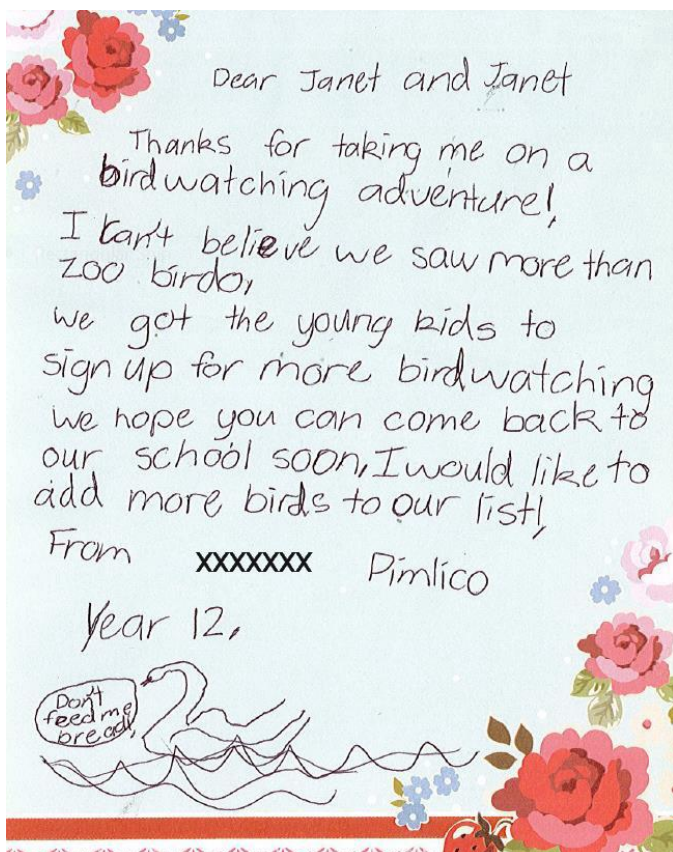 Dear Janet and Janet
Thanks for taking me on a
birdwatching adventure!
I can't believe we saw more than
200 birds,
we got the young kids to
sign up for more birdwatching
we hope you can come back to
our school soon, I would like to
add more birds to our list!
From XXXXXXX Pimlico
Year 12.
Don't
feed me
bread!